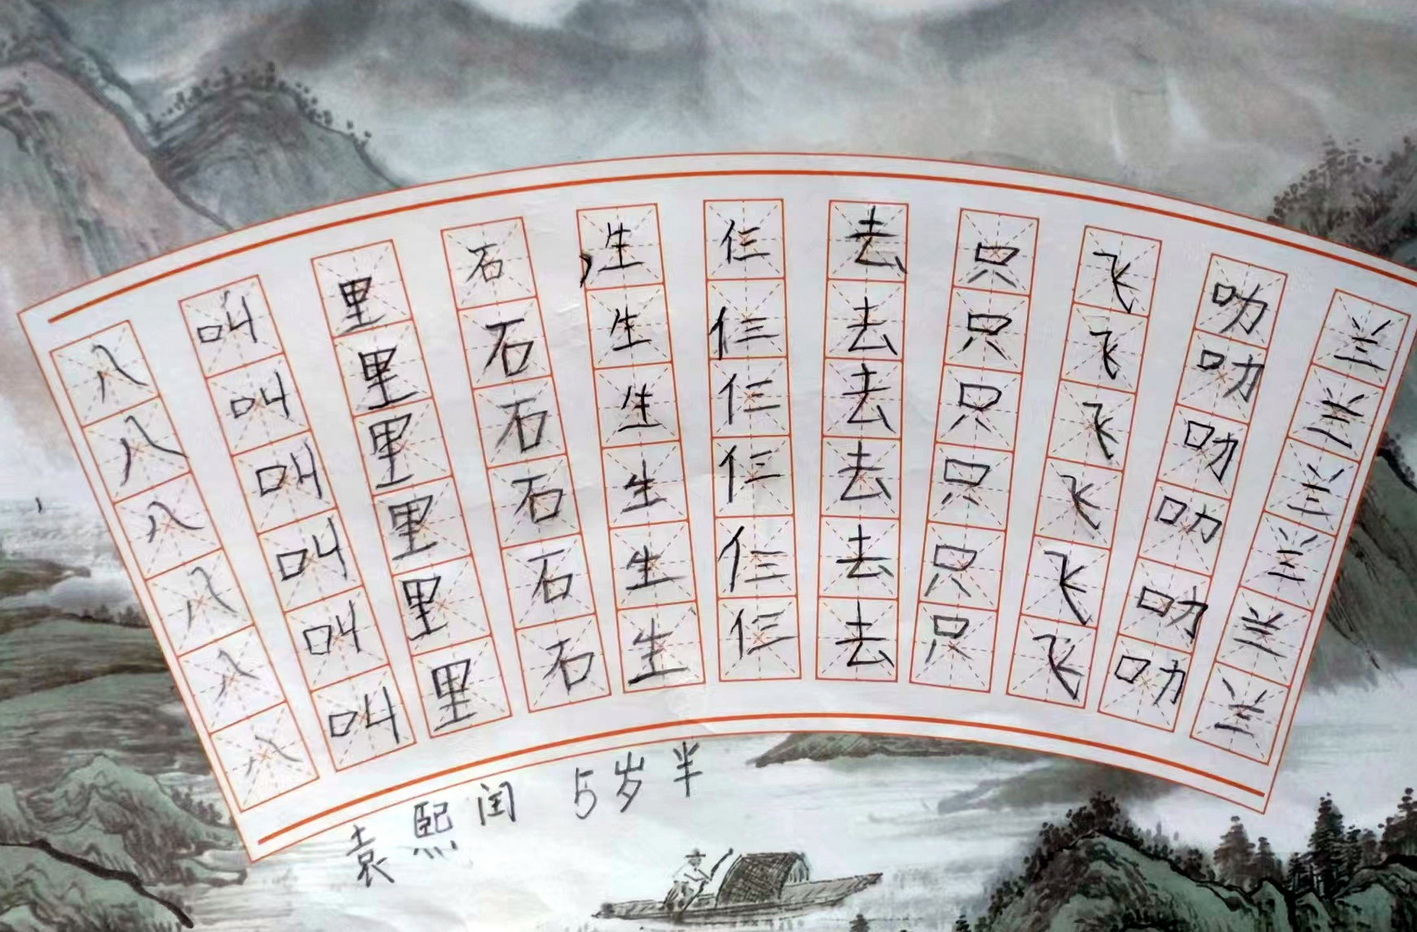 八八八八八八
叫叫叫叫叫叫
里里里里里里
石石石石石石
生生生生生生
仨仨仨仨仨仨
去去去去去去
只只只只只只
飞飞飞飞飞飞
叻叻叻叻叻叻
兰兰兰兰兰兰
袁熙闰 5岁半